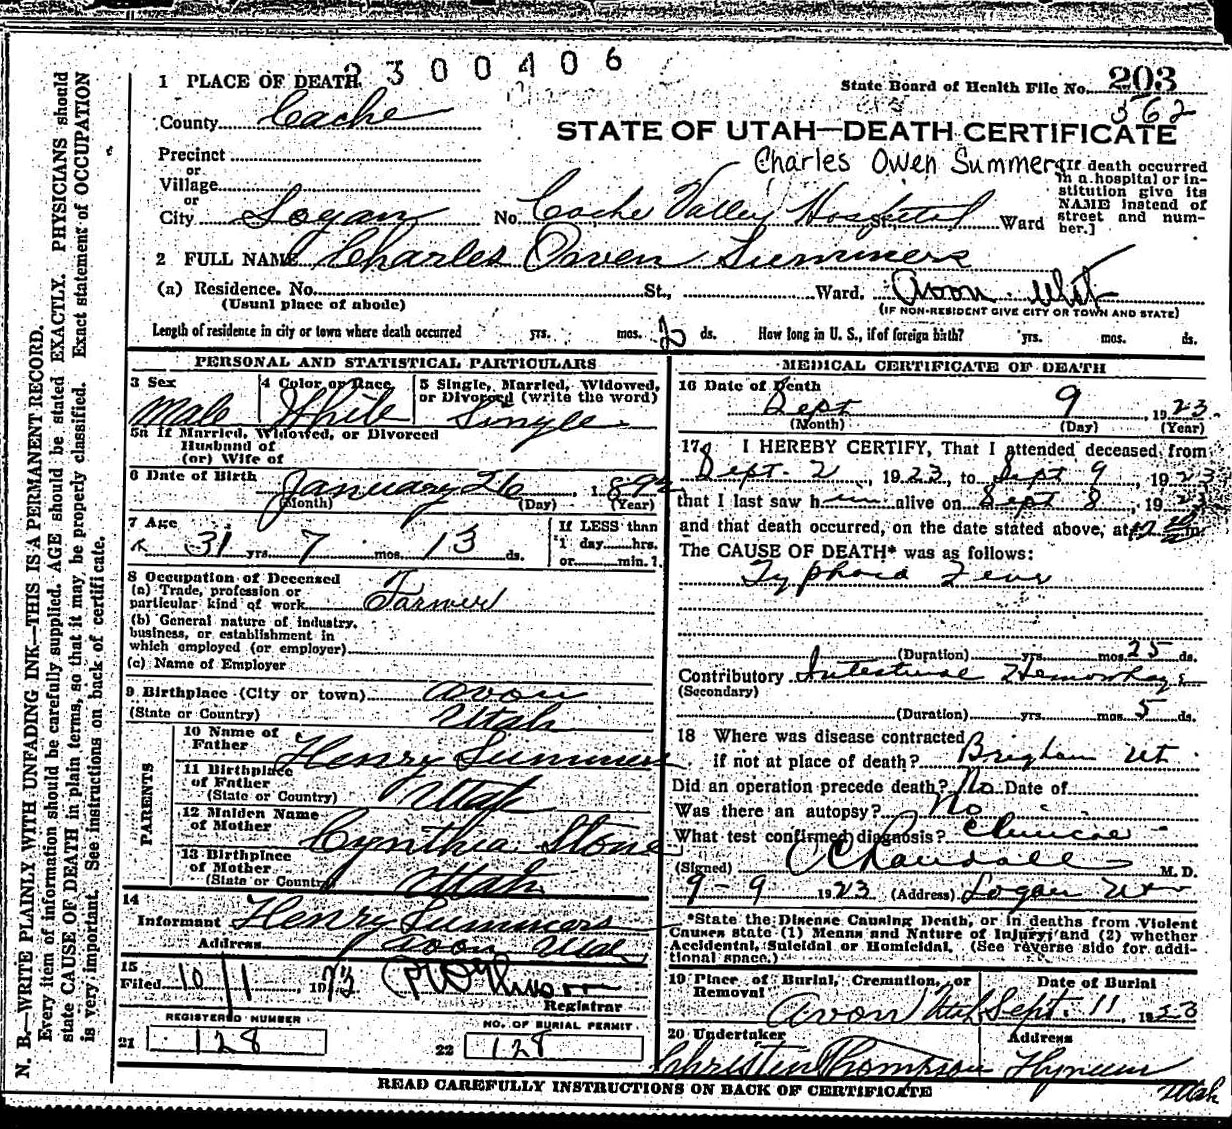 2300406
1 PLACE OF DEATH
State Board of Health File No. 203
562
County Cache
STATE OF UTAH—DEATH CERTIFICATE
Precinct
Charles Owen Summers
or
Village
or
City Logan No. Cache Valley Hospital St., Ward
[If death occurred
in a hospital or in-
stitution give its
NAME instead of
street and num-
ber.]
2 FULL NAME Charles Owen Summers
(a) Residence. No. St., Ward. Avon Utah
(Usual place of abode)
(IF NON-RESIDENT GIVE CITY OR TOWN AND STATE)
Length of residence in city or town where death occurred yrs. mos. 2 ds. How long in U. S., if of foreign birth? yrs. mos. ds.
PERSONAL AND STATISTICAL PARTICULARS
3 Sex
Male
4 Color or Race
White
5 Single, Married, Widowed,
or Divorced (write the word)
Single
5a If Married, Widowed, or Divorced
Husband of
(or) Wife of
6 Date of Birth
January 26, 1892
(Month) (Day) (Year)
7 Age
31 yrs. 7 mos. 13 ds.
If LESS than
1 day hrs.
or min.?
8 Occupation of Deceased
(a) Trade, profession or
particular kind of work Farmer
(b) General nature of industry,
business, or establishment in
which employed (or employer)
(c) Name of Employer
9 Birthplace (City or town) Avon
(State or Country) Utah
PARENTS
10 Name of
Father Henry Summers
11 Birthplace
of Father
(State or Country) Utah
12 Maiden Name
of Mother Cynthia Stone
13 Birthplace
of Mother
(State or Country) Utah
14
Informant Henry Summers
Address Avon Utah
15
Filed 10/1, 1923
Registrar
REGISTERED NUMBER
21 128
NO. OF BURIAL PERMIT
22 128
MEDICAL CERTIFICATE OF DEATH
16 Date of Death
Sept 9, 1923
(Month) (Day) (Year)
17 I HEREBY CERTIFY, That I attended deceased from
Sept. 2, 1923, to Sept 9, 1923
that I last saw him alive on Sept 8, 1923
and that death occurred, on the date stated above, at m.
The CAUSE OF DEATH* was as follows:
Typhoid Fever
(Duration) yrs. mos. 25 ds.
Contributory Intestinal Hemorrhage
(Secondary)
(Duration) yrs. mos. 5 ds.
18 Where was disease contracted
if not at place of death? Brigham Ut
Did an operation precede death? No Date of
Was there an autopsy? No
What test confirmed diagnosis? Clinical
(Signed) M. D.
9-9 1923 (Address) Logan Ut
*State the Disease Causing Death, or in deaths from Violent
Causes state (1) Means and Nature of Injury; and (2) whether
Accidental, Suicidal or Homicidal. (See reverse side for addi-
tional space.)
19 Place of Burial, Cremation, or
Removal
Avon Utah
Date of Burial
Sept. 11, 1923
20 Undertaker
Address
Thompson Hyrum
Utah
READ CAREFULLY INSTRUCTIONS ON BACK OF CERTIFICATE
N. B.—WRITE PLAINLY WITH UNFADING INK—THIS IS A PERMANENT RECORD.
Every item of information should be carefully supplied. AGE should be stated EXACTLY. PHYSICIANS should
state CAUSE OF DEATH in plain terms, so that it may be properly classified. Exact statement of OCCUPATION
is very important. See instructions on back of certificate.